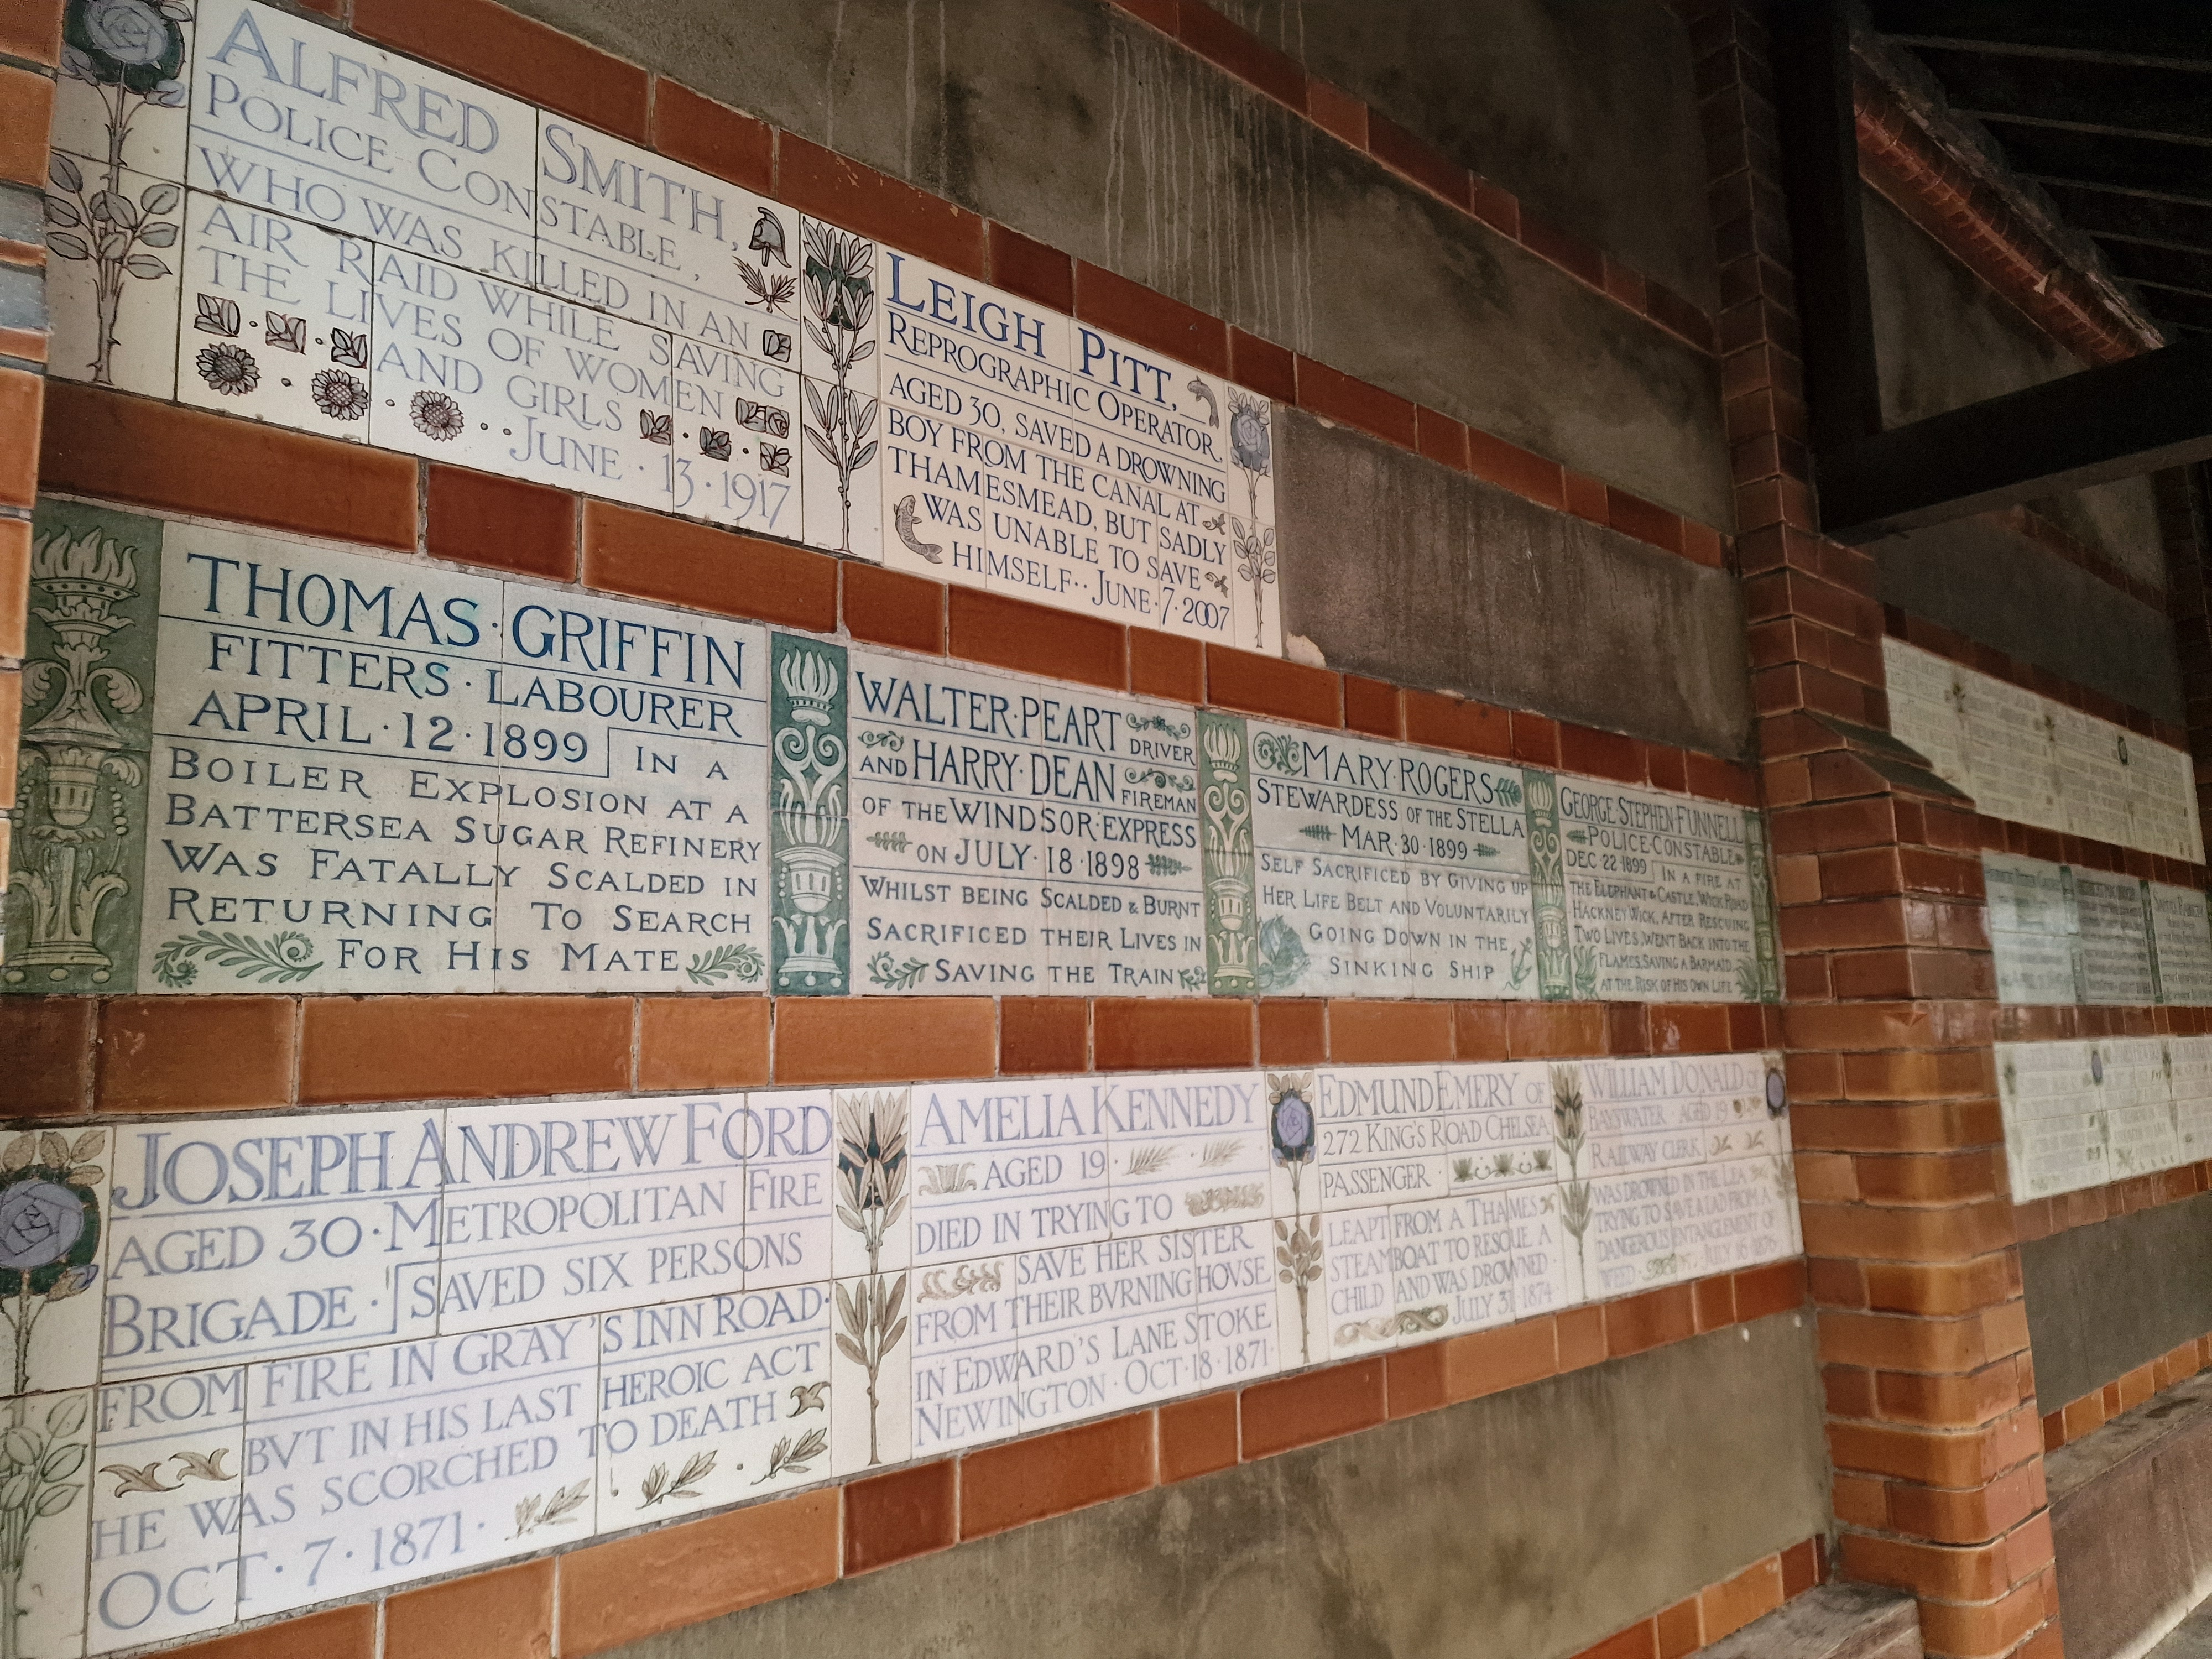 ALFRED SMITH,
POLICE CONSTABLE,
WHO WAS KILLED IN AN
AIR RAID WHILE SAVING
THE LIVES OF WOMEN
AND GIRLS
··JUNE·13·1917
LEIGH PITT,
REPROGRAPHIC OPERATOR,
AGED 30, SAVED A DROWNING
BOY FROM THE CANAL AT
THAMESMEAD, BUT SADLY
WAS UNABLE TO SAVE
HIMSELF··JUNE·7·2007
THOMAS·GRIFFIN
FITTERS·LABOURER
APRIL·12·1899 IN A
BOILER EXPLOSION AT A
BATTERSEA SUGAR REFINERY
WAS FATALLY SCALDED IN
RETURNING TO SEARCH
FOR HIS MATE
WALTER·PEART DRIVER
AND HARRY·DEAN FIREMAN
OF THE WINDSOR·EXPRESS
ON JULY·18·1898
WHILST BEING SCALDED & BURNT
SACRIFICED THEIR LIVES IN
SAVING THE TRAIN
MARY·ROGERS
STEWARDESS OF THE STELLA
MAR·30·1899
SELF SACRIFICED BY GIVING UP
HER LIFE BELT AND VOLUNTARILY
GOING DOWN IN THE
SINKING SHIP
GEORGE·STEPHEN·FUNNELL
POLICE·CONSTABLE
DEC·22·1899 IN A FIRE AT
THE ELEPHANT & CASTLE, WICK ROAD
HACKNEY WICK, AFTER RESCUING
TWO LIVES, WENT BACK INTO THE
FLAMES, SAVING A BARMAID
AT THE RISK OF HIS OWN LIFE
JOSEPH ANDREW FORD
AGED 30·METROPOLITAN FIRE
BRIGADE· SAVED SIX PERSONS
FROM FIRE IN GRAY'S INN ROAD·
BVT IN HIS LAST HEROIC ACT
HE WAS SCORCHED TO DEATH
OCT·7·1871·
AMELIA KENNEDY
AGED 19·
DIED IN TRYING TO
SAVE HER SISTER
FROM THEIR BVRNING HOVSE
IN EDWARD'S LANE STOKE
NEWINGTON·OCT·18·1871·
EDMUND EMERY OF
272 KING'S ROAD CHELSEA
PASSENGER·
LEAPT FROM A THAMES
STEAMBOAT TO RESCUE A
CHILD AND WAS DROWNED·
JULY 31·1874·
WILLIAM DONALD OF
BAYSWATER·AGED 19·
RAILWAY CLERK
WAS DROWNED IN THE LEA
TRYING TO SAVE A LAD FROM A
DANGEROUS ENTANGLEMENT OF
WEED· JULY 16·1876